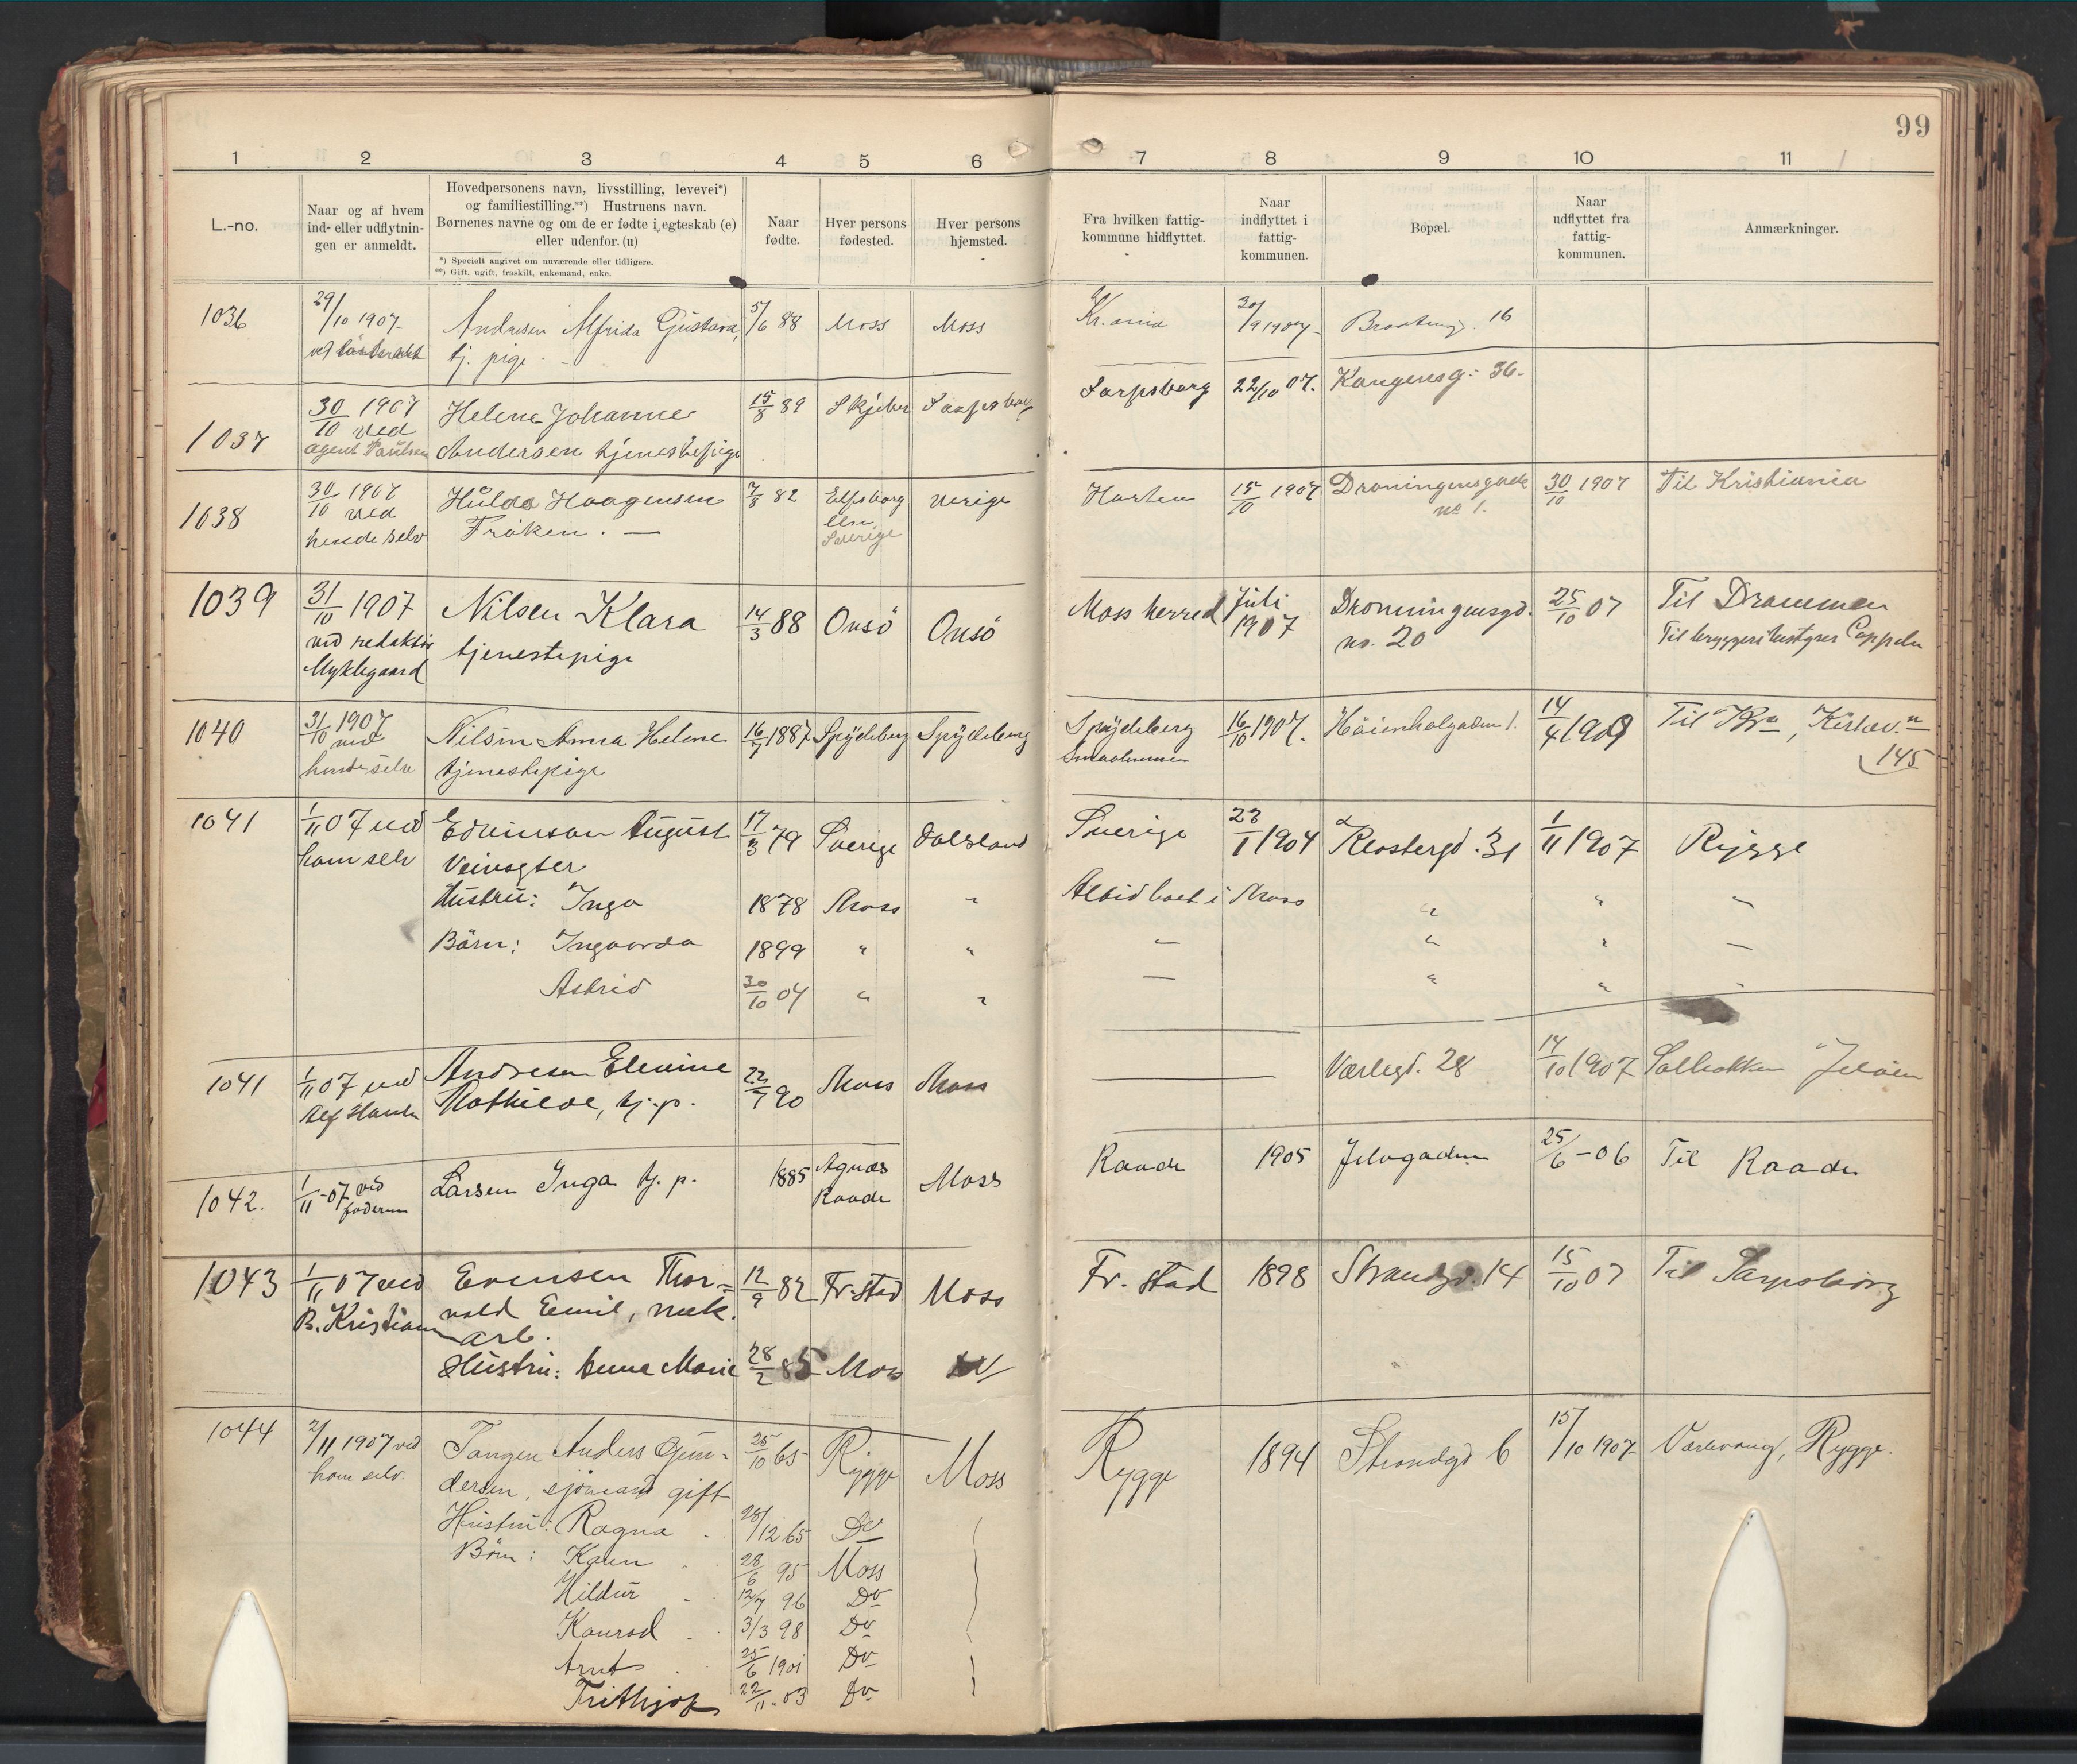 99
1 2 3 4 5 6 7 8 9 10 11
L.-no.
Naar og af hvem
ind- eller udflytnin-
gen er anmeldt.
Hovedpersonens navn, livsstilling, levevei*)
og familiestilling.**) Hustruens navn.
Børnenes navne og om de er fødte i egteskab (e)
eller udenfor. (u)
*) Specielt angivet om nuværende eller tidligere.
**) Gift, ugift, fraskilt, enkemand, enke.
Naar
fødte.
Hver persons
fødested.
Hver persons
hjemsted.
Fra hvilken fattig-
kommune hidflyttet.
Naar
indflyttet i
fattig-
kommunen.
Bopæl.
Naar
udflyttet fra
fattig-
kommunen.
Anmærkninger.
1036 29/10 1907 Andresen Alfrida Gustava, 5/6 88 Moss Moss Kr.ania 30/9 1907 16
tj. pige
1037 30/10 1907 Helene Johanne 15/8 89 Skjeber Sarpsborg Sarpsborg 22/10 07. Kongensg: 36.
ved
agent Paulsen Andersen tjenestepige
1038 30/10 1907 Hulda Haagensen 7/8 82 Elfsborg Sverige Horten 15/10 1907 Droningensgade 30/10 1907 Til Kristiania
ved len no 1.
hende selv Frøken. — Sverige
1039 31/10 1907 Nilsen Klara 14/3 88 Onsö Onsö Moss herred Juli Dronningensgd. 25/10 07 Til Drammen
ved redaktør tjenestepige 1907 no. 20 Til bryggeribestyrer Cappelen
Myklegaard
1040 31/10 1907 Nilsen Anna Helene 16/7 1887 Spydeberg Spydeberg Spydeberg 16/10 1907. Höienhalgaden 1. 14/4 1909 Til Kra, Kirkev.n
ved Smaalenene 145
hende selv tjenestepige
1041 1/11 07 ved Edvinson August 17/3 79 Sverige Dalsland Sverige 23/1 1904 Klostergd. 31 1/11 1907 Rygge
ham selv Veivogter
Hustru: Inga 1878 Moss " Altid boet i Moss " " "
Børn: Ingvarda 1899 " " — " " —
Astrid 30/10 04 " " — " " "
1041 1/11 07 ved Andresen Elevine 22/7 90 Moss Moss — Værlegd. 28 14/10 1907 Solbakken Jeløen
Alf Hansen Mathilde, tj.p.
1042. 1/11-07 ved Larsen Inga tj. p. 1885 Agnæs Moss Raade 1905 Jeløgaden 25/6-06 Til Raade
faderen Raade
1043 1/11 07 ved Evensen Thor- 12/9 82 Fr.stad Moss Fr. stad 1898 Strandgd. 14 15/10 07 Til Sarpsborg
B. Kristiansen vald Emil, mek.
arb.
Hustru: Anna Marie 28/2 85 Moss
1044 2/11 1907 ved Tangen Anders Gun- 25/10 65 Rygge Moss Rygge 1894 Strandgd 6 15/10 1907 Varlevang, Rygge.
ham selv. dersen, sjömand gift
Hustru: Ragna 28/12 65 Do
Børn: Karen 28/6 95 Moss
Hildur 12/7 96 Do
Konrad 3/3 98 Do
Arnt 25/6 1901 Do
Frithjof 22/11-03 Do